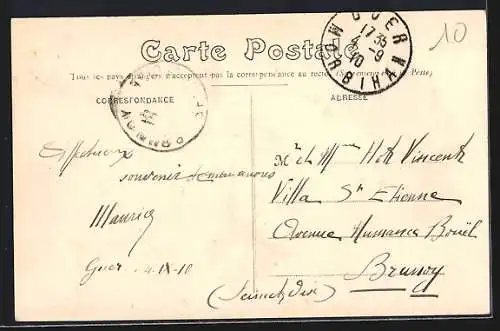 10
Carte Postale
Tous les pays étrangers n'acceptent pas la correspondance au recto (Se renseigner à la Poste)
CORRESPONDANCE
ADRESSE
GUER
17 35
4 -9
10
MORBIHAN
Affectueux
souvenir de manœuvres
Maurice
Guer 4-IX-10
Mr et Mme Vincent
Villa St Etienne
Avenue
Brunoy
(Seine et Oise)